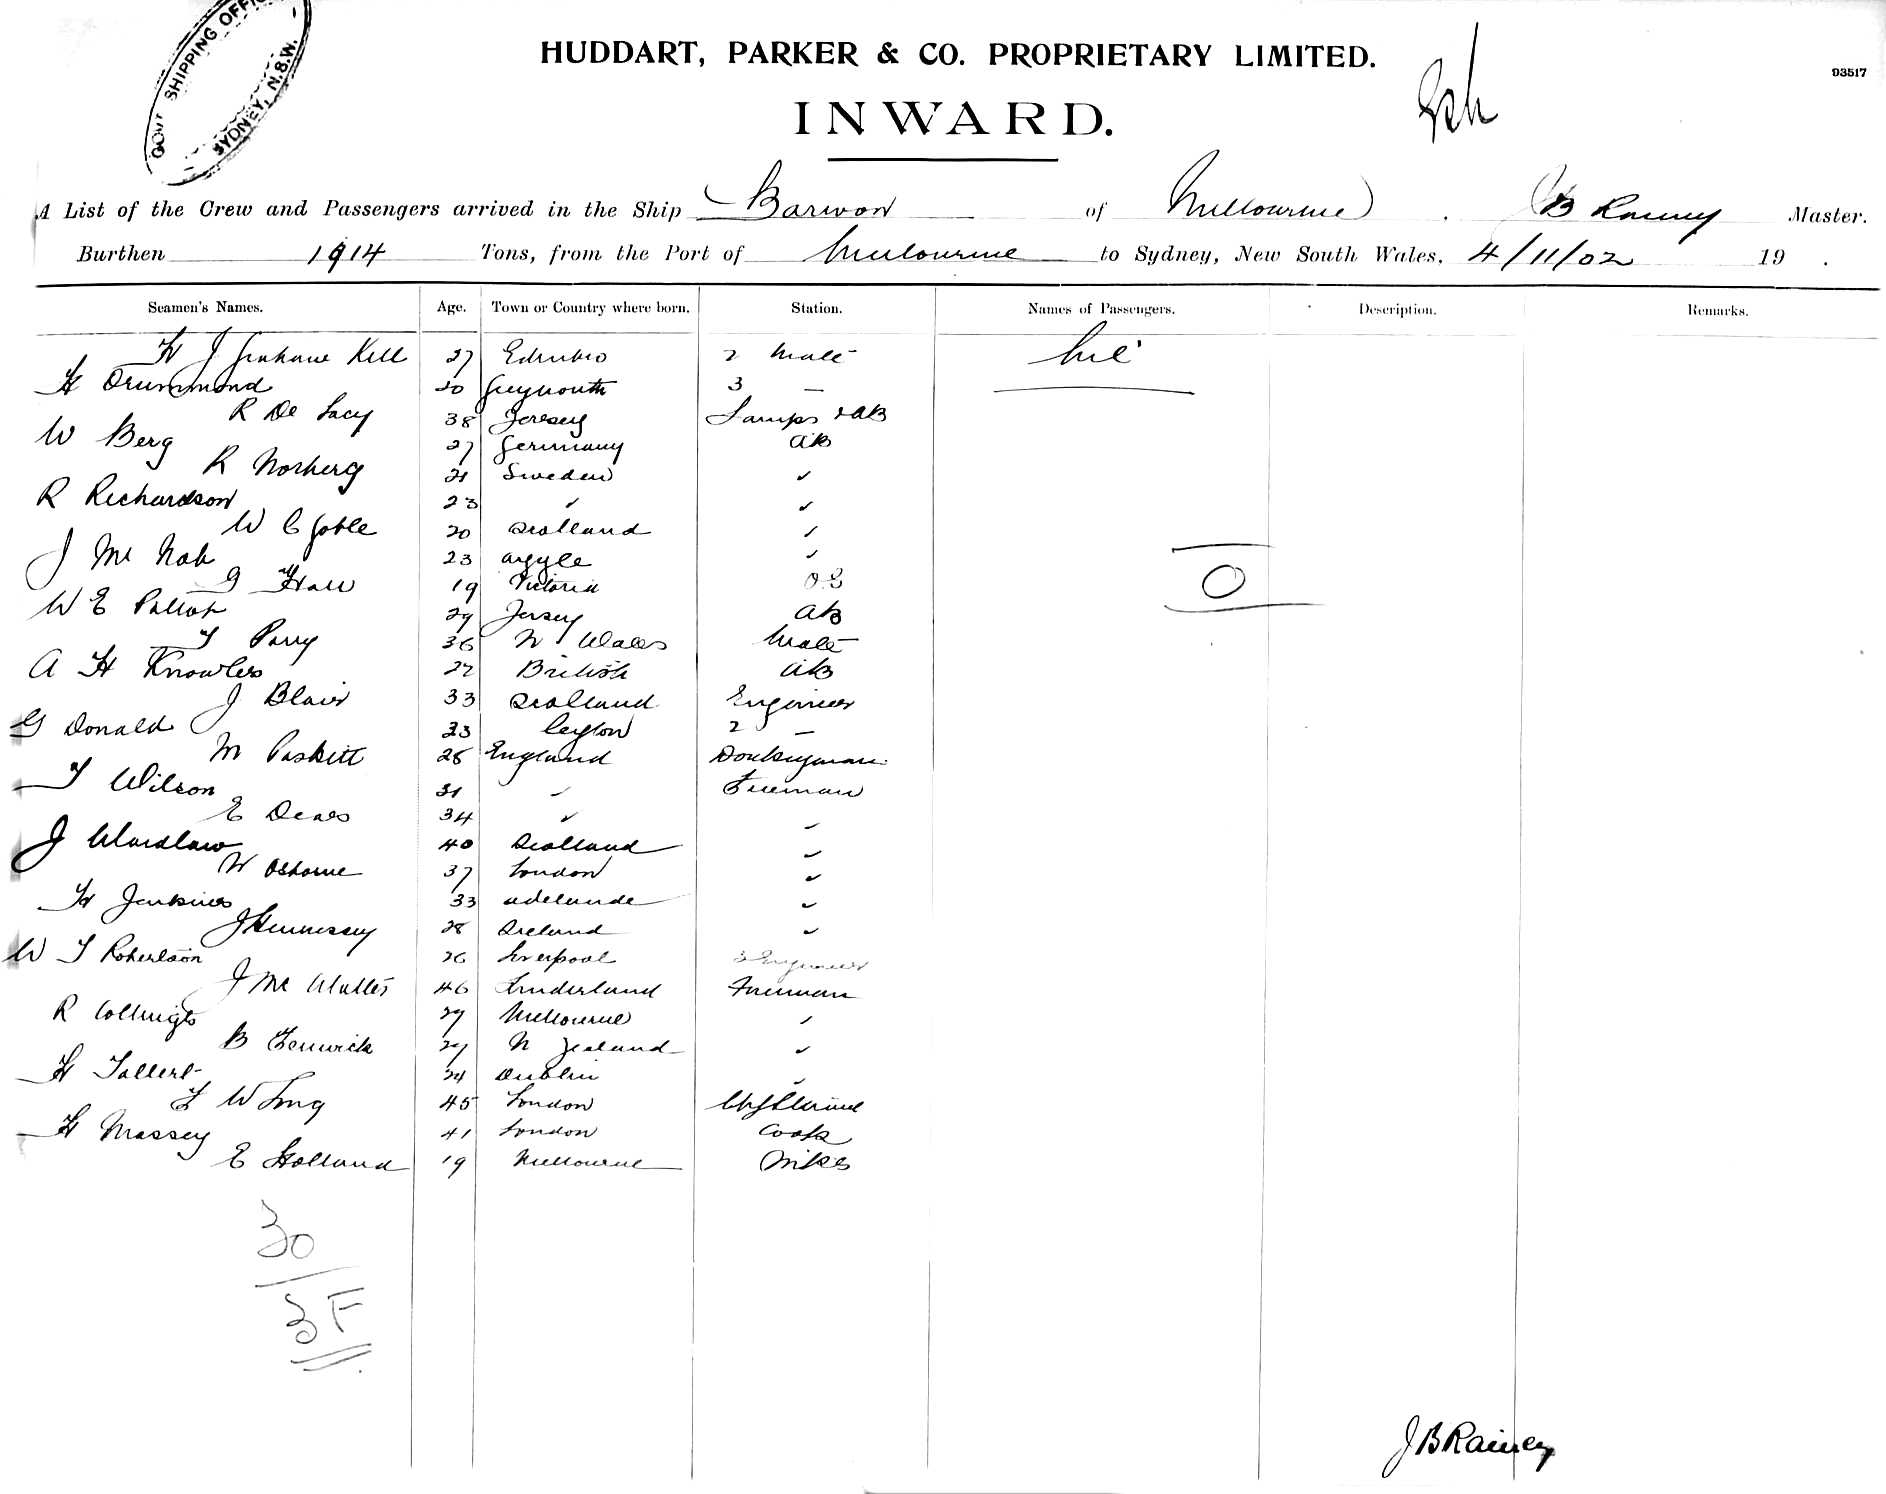 GOVT SHIPPING OFFICE
SYDNEY, N.S.W.
HUDDART, PARKER & CO. PROPRIETARY LIMITED.
93517
INWARD.
A List of the Crew and Passengers arrived in the Ship Barwon of Melbourne . J B Rainey Master.
Burthen 1914 Tons, from the Port of Melbourne to Sydney, New South Wales. 4/11/02 19 .
Seamen's Names. Age. Town or Country where born. Station. Names of Passengers. Description. Remarks.
H J Grahame Kell 27 Edinbro 2 Mate Nil
H Drummond 20 Greymouth 3 —
R De Lacy 38 Jersey Lamps & AB
W Berg 27 Germany AB
R Norberg 21 Sweden ✓
R Richardson 23 ✓ ✓
W C Goble 20 Scotland ✓
J Mc Nab 23 Argyle ✓
G Hall 19 Victoria O.S
O
W E Pallot 29 Jersey AB
T Parry 36 N Wales Mate
A H Knowles 22 British AB
J Blair 33 Scotland Engineer
G Donald 33 Ceylon 2 —
M Paskett 28 England Donkeyman
T Wilson 31 ✓ Fireman
E Deas 34 ✓ ✓
J Wardlaw 40 Scotland ✓
W Osborne 37 London ✓
H Jenkins 33 Adelaide ✓
J Hennessey 28 Ireland ✓
W T Robertson 26 Liverpool 3 Engineer
J Mc 46 Sunderland Fireman
R 29 Melbourne ✓
B Fenwick 29 N Zealand ✓
H 24 Dublin ✓
F W Long 45 London Ch Steward
H Massey 41 London Cook
E Holland 19 Melbourne
30
3 F
J B Rainey